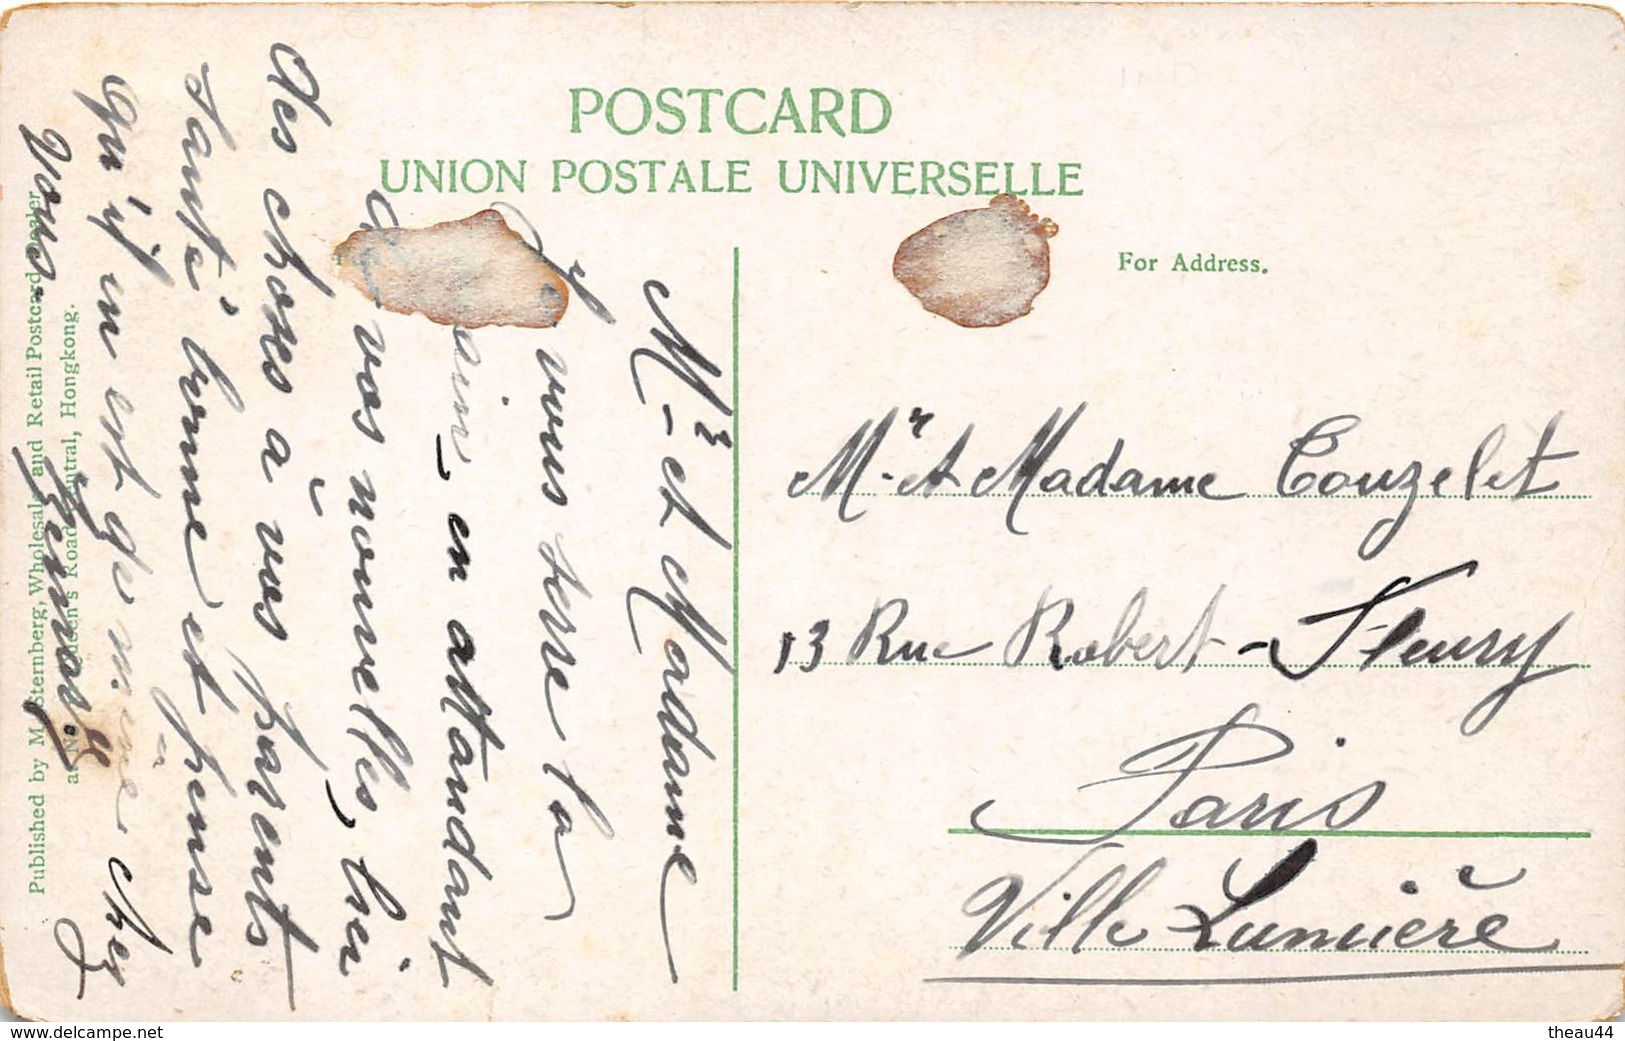 POSTCARD
UNION POSTALE UNIVERSELLE
For Address.
Mr et Madame
Je vous serre la
main, en attendant
de vos nouvelles, bien
des choses à vos parents
santé bonne et pense
qu'il en est de même chez
vous.
Mr et Madame Couzelet
13 Rue Robert-Fleury
Paris
Ville Lumière
Published by M. Sternberg, Wholesale and Retail Postcard Dealer
at No. Queen's Road Central, Hongkong.
www.delcampe.net
theau44